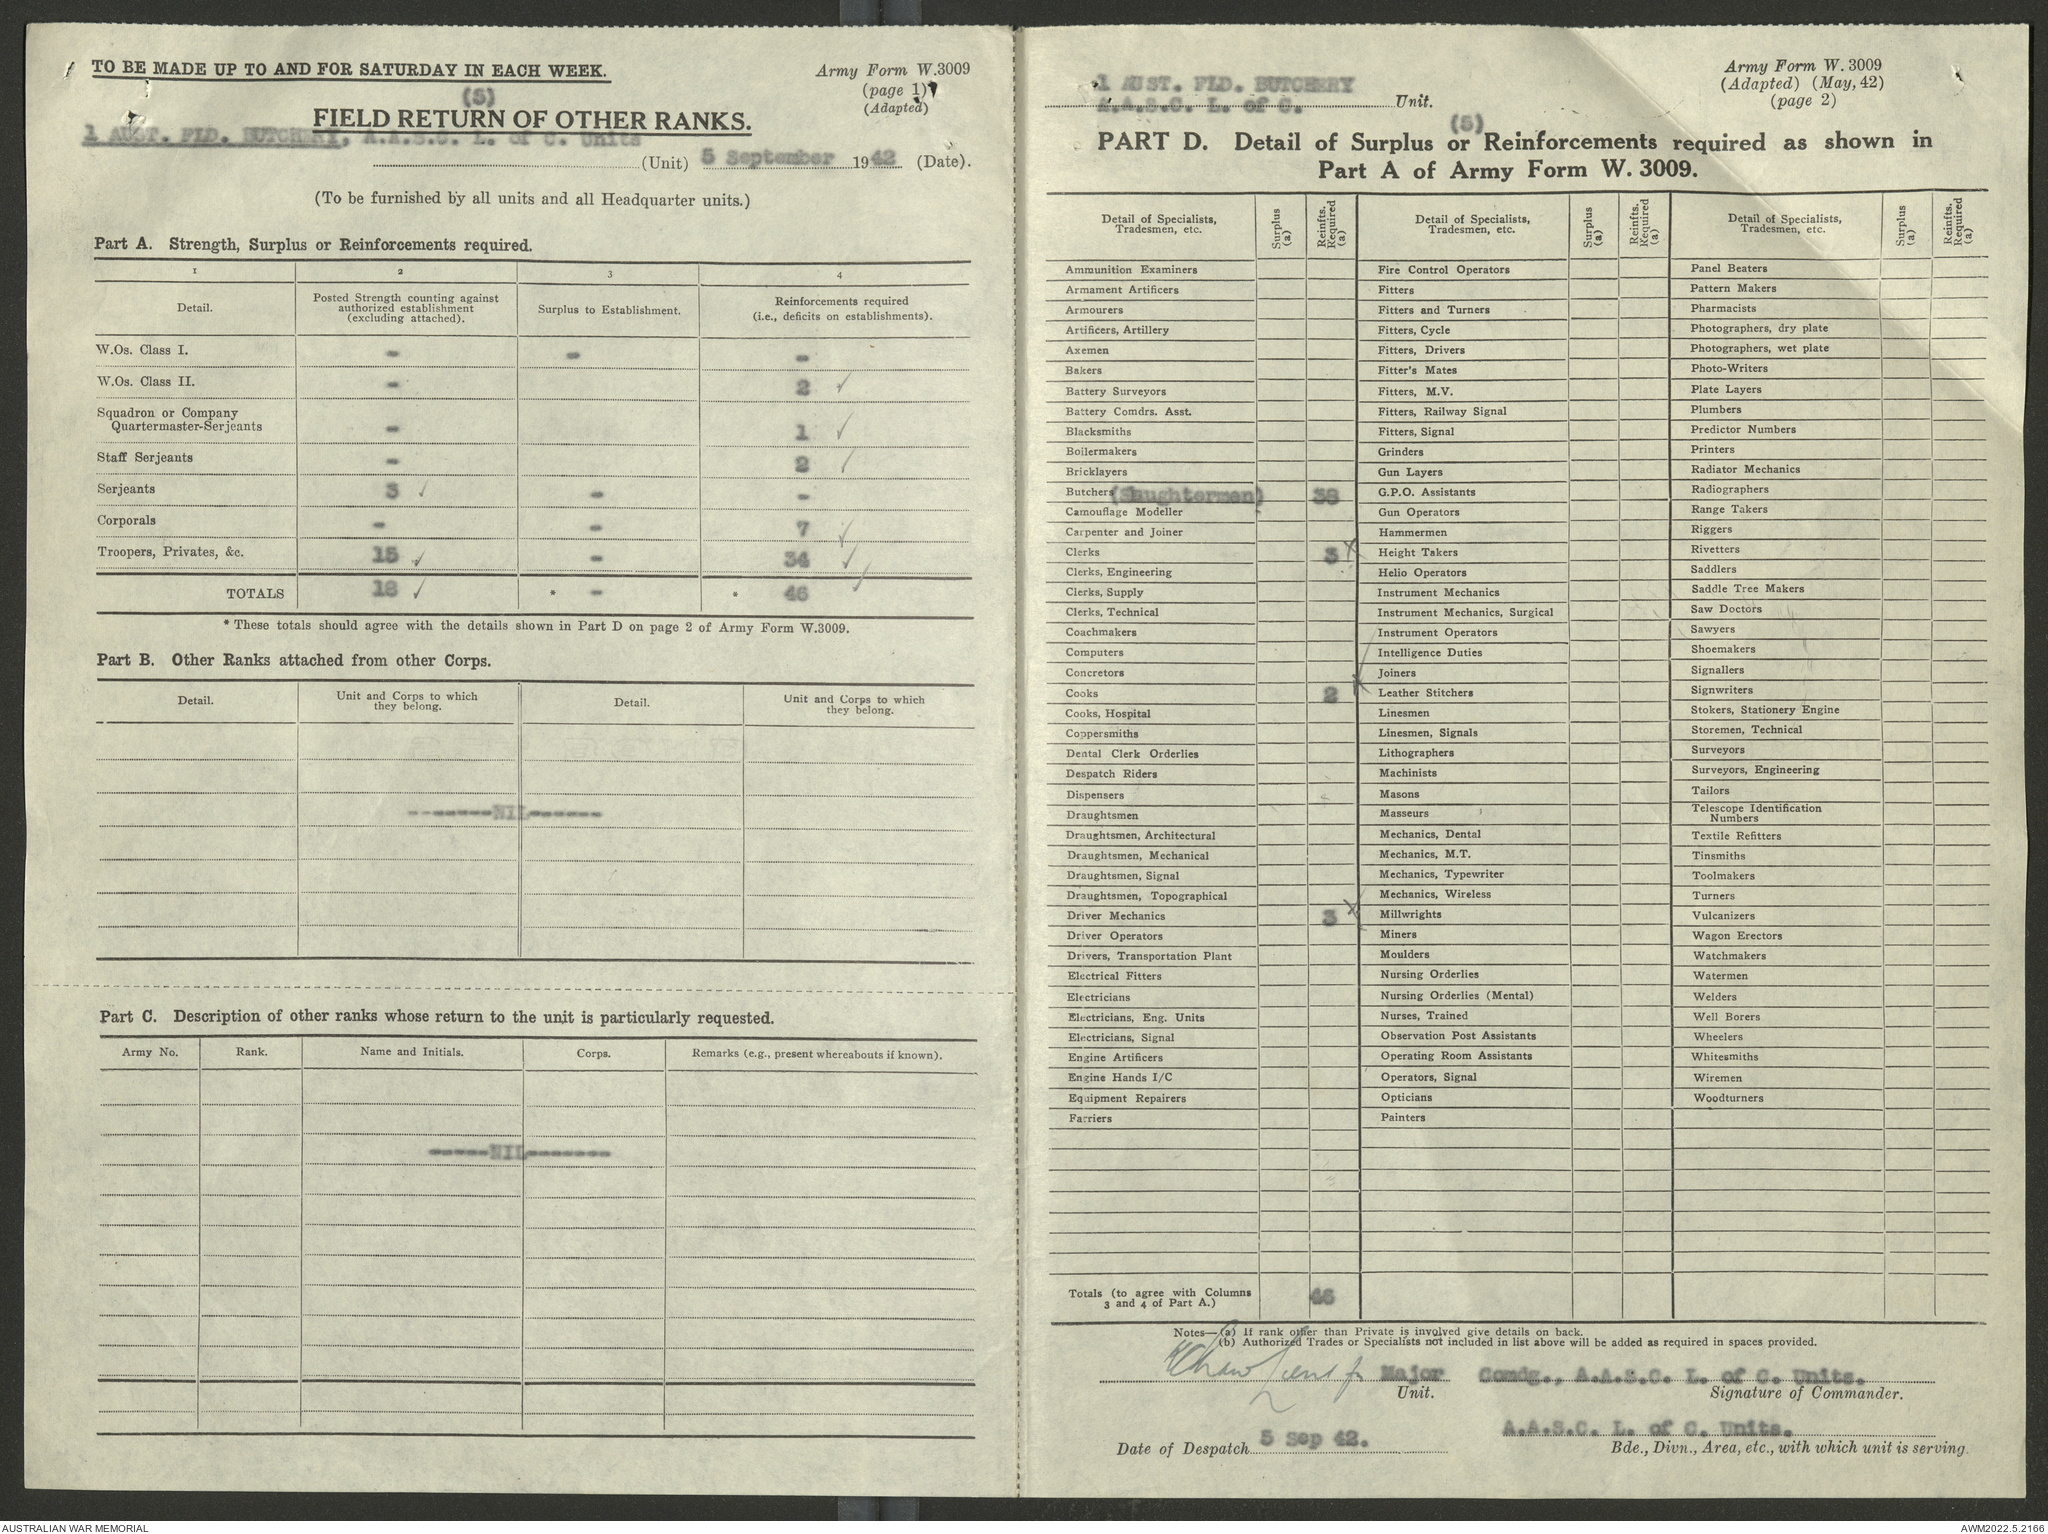 TO BE MADE UP TO AND FOR SATURDAY IN EACH WEEK.
Army Form W.3009
(page 1)
(Adapted)
(5)
FIELD RETURN OF OTHER RANKS.
1 AUST. FLD. BUTCHERY, A.A.S.C. L. of C. Units
(Unit) 5 September 1942 (Date).
(To be furnished by all units and all Headquarter units.)
Part A. Strength, Surplus or Reinforcements required.
1 2 3 4
Detail. Posted Strength counting against authorized establishment (excluding attached). Surplus to Establishment. Reinforcements required (i.e., deficits on establishments).
W.Os. Class I. - - -
W.Os. Class II. - 2 ✓
Squadron or Company
Quartermaster-Serjeants - 1 ✓
Staff Serjeants - 2 ✓
Serjeants 3 ✓ - -
Corporals - - 7 ✓
Troopers, Privates, &c. 15 ✓ - 34 ✓
TOTALS 18 ✓ * - * 46 ✓
* These totals should agree with the details shown in Part D on page 2 of Army Form W.3009.
Part B. Other Ranks attached from other Corps.
Detail. Unit and Corps to which they belong. Detail. Unit and Corps to which they belong.
-------NIL------
Part C. Description of other ranks whose return to the unit is particularly requested.
Army No. Rank. Name and Initials. Corps. Remarks (e.g., present whereabouts if known).
-----NIL-------
1 AUST. FLD. BUTCHERY
A.A.S.C. L. of C. Unit.
Army Form W. 3009
(Adapted) (May, 42)
(page 2)
(5)
PART D. Detail of Surplus or Reinforcements required as shown in
Part A of Army Form W. 3009.
Detail of Specialists, Tradesmen, etc. Surplus (a) Reinfts. Required (a)
Ammunition Examiners
Armament Artificers
Armourers
Artificers, Artillery
Axemen
Bakers
Battery Surveyors
Battery Comdrs. Asst.
Blacksmiths
Boilermakers
Bricklayers
Butchers (Slaughtermen) 38
Camouflage Modeller
Carpenter and Joiner
Clerks 3 x
Clerks, Engineering
Clerks, Supply
Clerks, Technical
Coachmakers
Computers
Concretors
Cooks 2 x
Cooks, Hospital
Coppersmiths
Dental Clerk Orderlies
Despatch Riders
Dispensers
Draughtsmen
Draughtsmen, Architectural
Draughtsmen, Mechanical
Draughtsmen, Signal
Draughtsmen, Topographical
Driver Mechanics 3 x
Driver Operators
Drivers, Transportation Plant
Electrical Fitters
Electricians
Electricians, Eng. Units
Electricians, Signal
Engine Artificers
Engine Hands I/C
Equipment Repairers
Farriers
Totals (to agree with Columns
3 and 4 of Part A.) 46
Detail of Specialists, Tradesmen, etc. Surplus (a) Reinfts. Required (a)
Fire Control Operators
Fitters
Fitters and Turners
Fitters, Cycle
Fitters, Drivers
Fitter's Mates
Fitters, M.V.
Fitters, Railway Signal
Fitters, Signal
Grinders
Gun Layers
G.P.O. Assistants
Gun Operators
Hammermen
Height Takers
Helio Operators
Instrument Mechanics
Instrument Mechanics, Surgical
Instrument Operators
Intelligence Duties
Joiners
Leather Stitchers
Linesmen
Linesmen, Signals
Lithographers
Machinists
Masons
Masseurs
Mechanics, Dental
Mechanics, M.T.
Mechanics, Typewriter
Mechanics, Wireless
Millwrights
Miners
Moulders
Nursing Orderlies
Nursing Orderlies (Mental)
Nurses, Trained
Observation Post Assistants
Operating Room Assistants
Operators, Signal
Opticians
Painters
Detail of Specialists, Tradesmen, etc. Surplus (a) Reinfts. Required (a)
Panel Beaters
Pattern Makers
Pharmacists
Photographers, dry plate
Photographers, wet plate
Photo-Writers
Plate Layers
Plumbers
Predictor Numbers
Printers
Radiator Mechanics
Radiographers
Range Takers
Riggers
Rivetters
Saddlers
Saddle Tree Makers
Saw Doctors
Sawyers
Shoemakers
Signallers
Signwriters
Stokers, Stationery Engine
Storemen, Technical
Surveyors
Surveyors, Engineering
Tailors
Telescope Identification
Numbers
Textile Refitters
Tinsmiths
Toolmakers
Turners
Vulcanizers
Wagon Erectors
Watchmakers
Watermen
Welders
Well Borers
Wheelers
Whitesmiths
Wiremen
Woodturners
Notes—(a) If rank other than Private is involved give details on back.
(b) Authorized Trades or Specialists not included in list above will be added as required in spaces provided.
Lieut for Major Comdg., A.A.S.C. L. of C. Units.
Unit. Signature of Commander.
A.A.S.C. L. of C. Units.
Date of Despatch 5 Sep 42. Bde., Divn., Area, etc., with which unit is serving.
AUSTRALIAN WAR MEMORIAL
AWM2022.5.2166